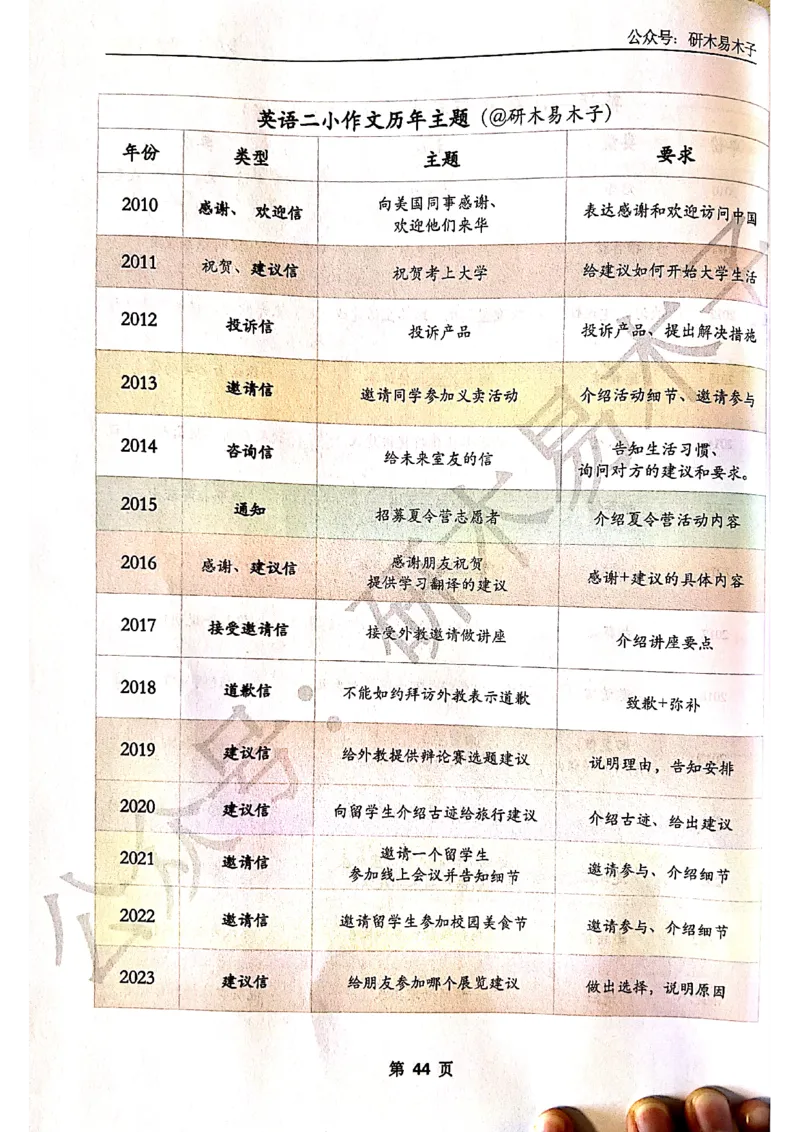 公众号：研木易木子
英语二小作文历年主题（@研木易木子）
年份 类型 主题 要求
2010 感谢、 欢迎信 向美国同事感谢、
欢迎他们来华 表达感谢和欢迎访问中国
2011 祝贺、建议信 祝贺考上大学 给建议如何开始大学生活
2012 投诉信 投诉产品 投诉产品、提出解决措施
2013 邀请信 邀请同学参加义卖活动 介绍活动细节、邀请参与
2014 咨询信 给未来室友的信 告知生活习惯、
询问对方的建议和要求。
2015 通知 招募夏令营志愿者 介绍夏令营活动内容
2016 感谢、建议信 感谢朋友祝贺
提供学习翻译的建议 感谢+建议的具体内容
2017 接受邀请信 接受外教邀请做讲座 介绍讲座要点
2018 道歉信 不能如约拜访外教表示道歉 致歉+弥补
2019 建议信 给外教提供辩论赛选题建议 说明理由，告知安排
2020 建议信 向留学生介绍古迹给旅行建议 介绍古迹、给出建议
2021 邀请信 邀请一个留学生
参加线上会议并告知细节 邀请参与、介绍细节
2022 邀请信 邀请留学生参加校园美食节 邀请参与、介绍细节
2023 建议信 给朋友参加哪个展览建议 做出选择，说明原因
公众号：研木易木子
第 44 页